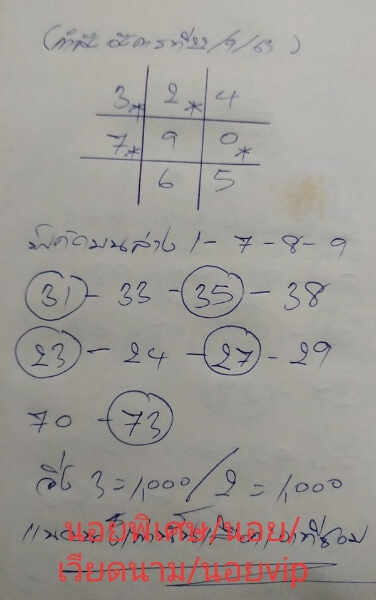 (กำลัง อังคารที่22/9/63)
3* 2* 4
7* 9 0*
6 5
พิกัดบนล่าง 1-7-8-9
31 - 33 - 35 - 38
23 - 24 - 27 - 29
70 - 73
วิ่ง 3=1,000/2=1,000
นอยพิเศษ/นอย/
เวียดนาม/นอยvip